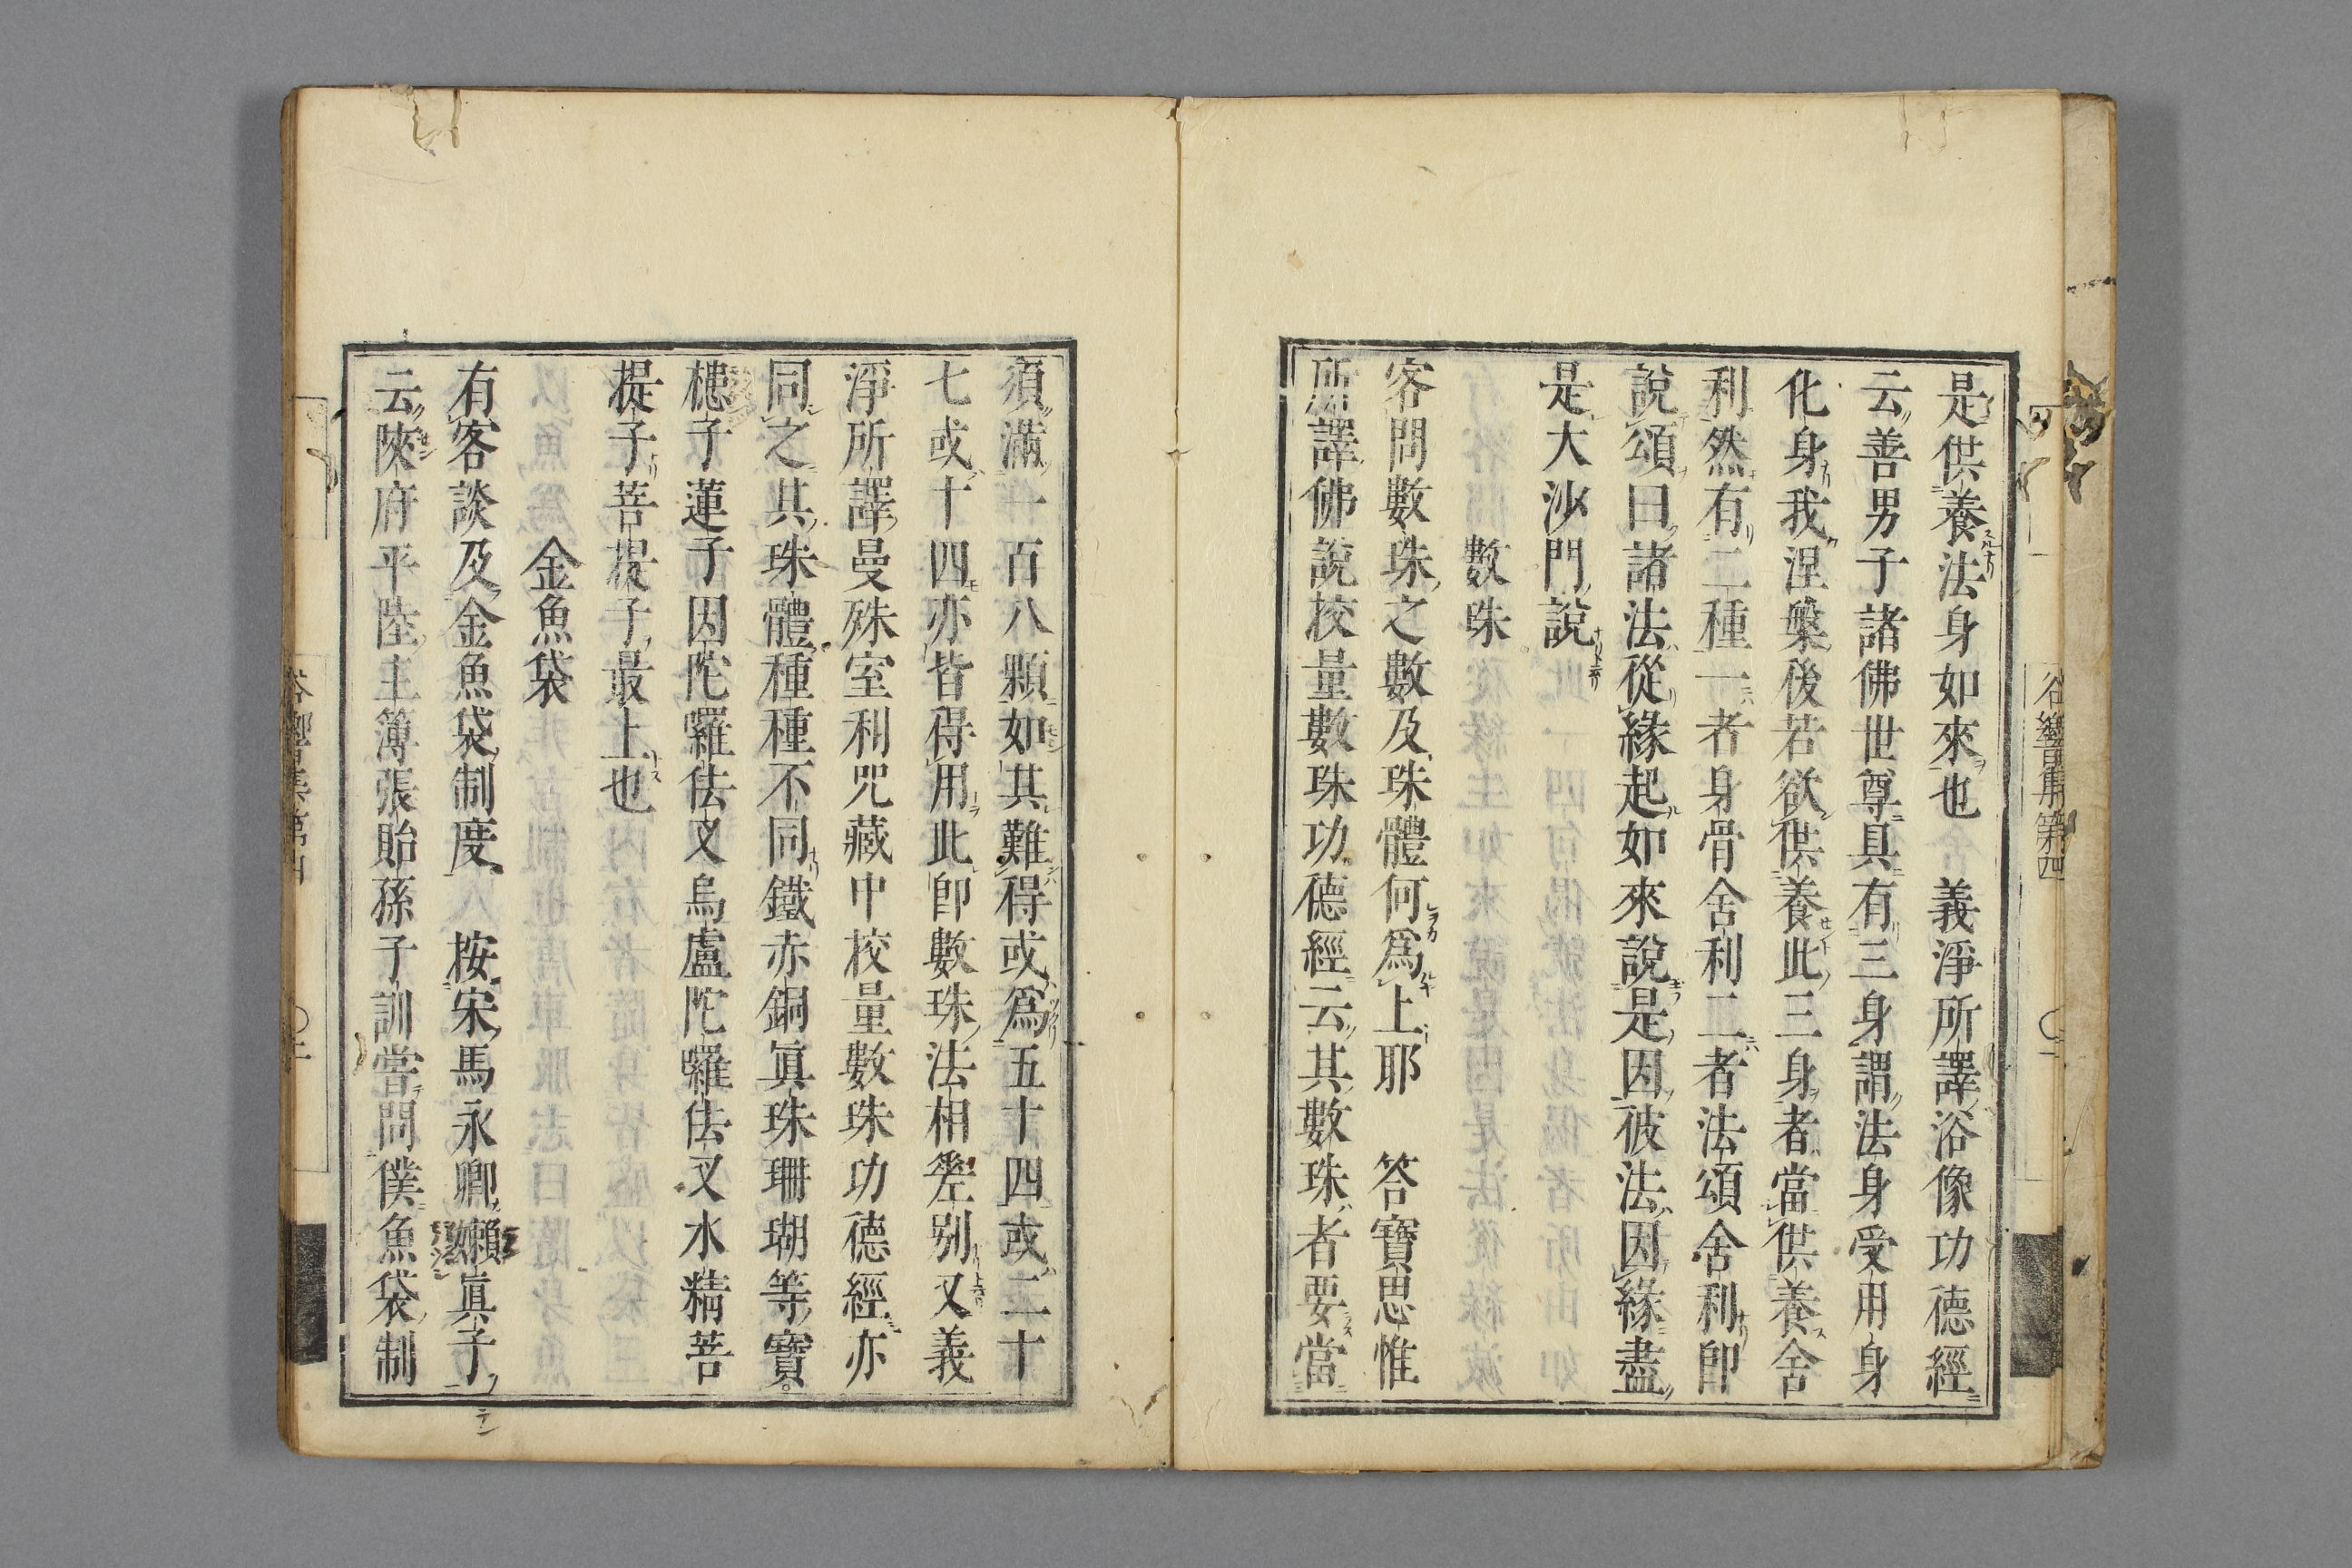 是供養法身如來也　義淨所譯浴像功德經
云善男子諸佛世尊具有三身謂法身受用身
化身我涅槃後若欲供養此三身者當供養舍
利然有二種一者身骨舍利二者法頌舍利即
說頌曰諸法從緣起如來說是因彼法因緣盡
是大沙門說
數珠
客問數珠之數及珠體何爲上耶　答寶思惟
所譯佛說校量數珠功德經云其數珠者要當
須滿一百八顆如其難得或爲五十四或二十
七或十四亦皆得用此即數珠法相差別又義
淨所譯曼殊室利咒藏中校量數珠功德經亦
同之其珠體種種不同鐵赤銅眞珠珊瑚等寶
槵子蓮子因陀囉佉叉烏盧陀囉佉叉水精菩
提子菩提子最上也
金魚袋
有客談及金魚袋制度　按宋馬永卿嬾眞子
云陝府平陸主簿張貽孫子訓嘗問僕魚袋制
谷響集第四